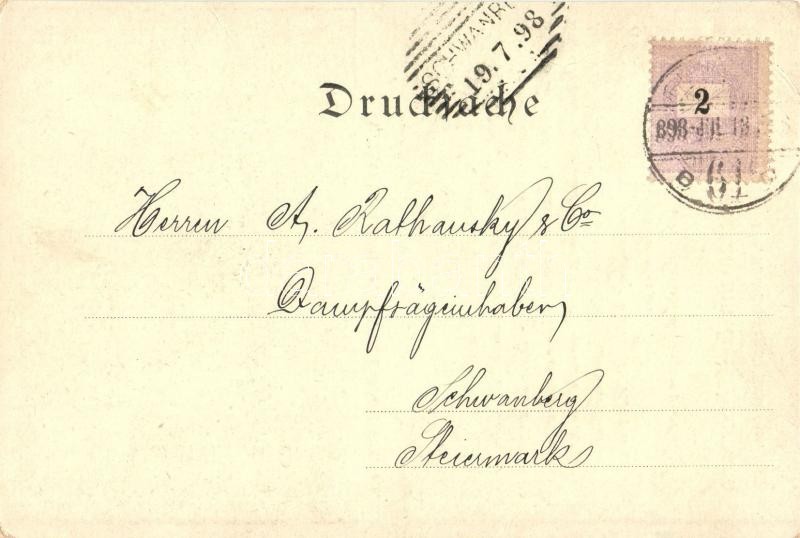 SCHWANB
19.7.98
Drucksache
2
898 JUL 18
B 61
Herren A. Rathausky & Co
Dampfsägeinhaber
Schwanberg
Steiermark